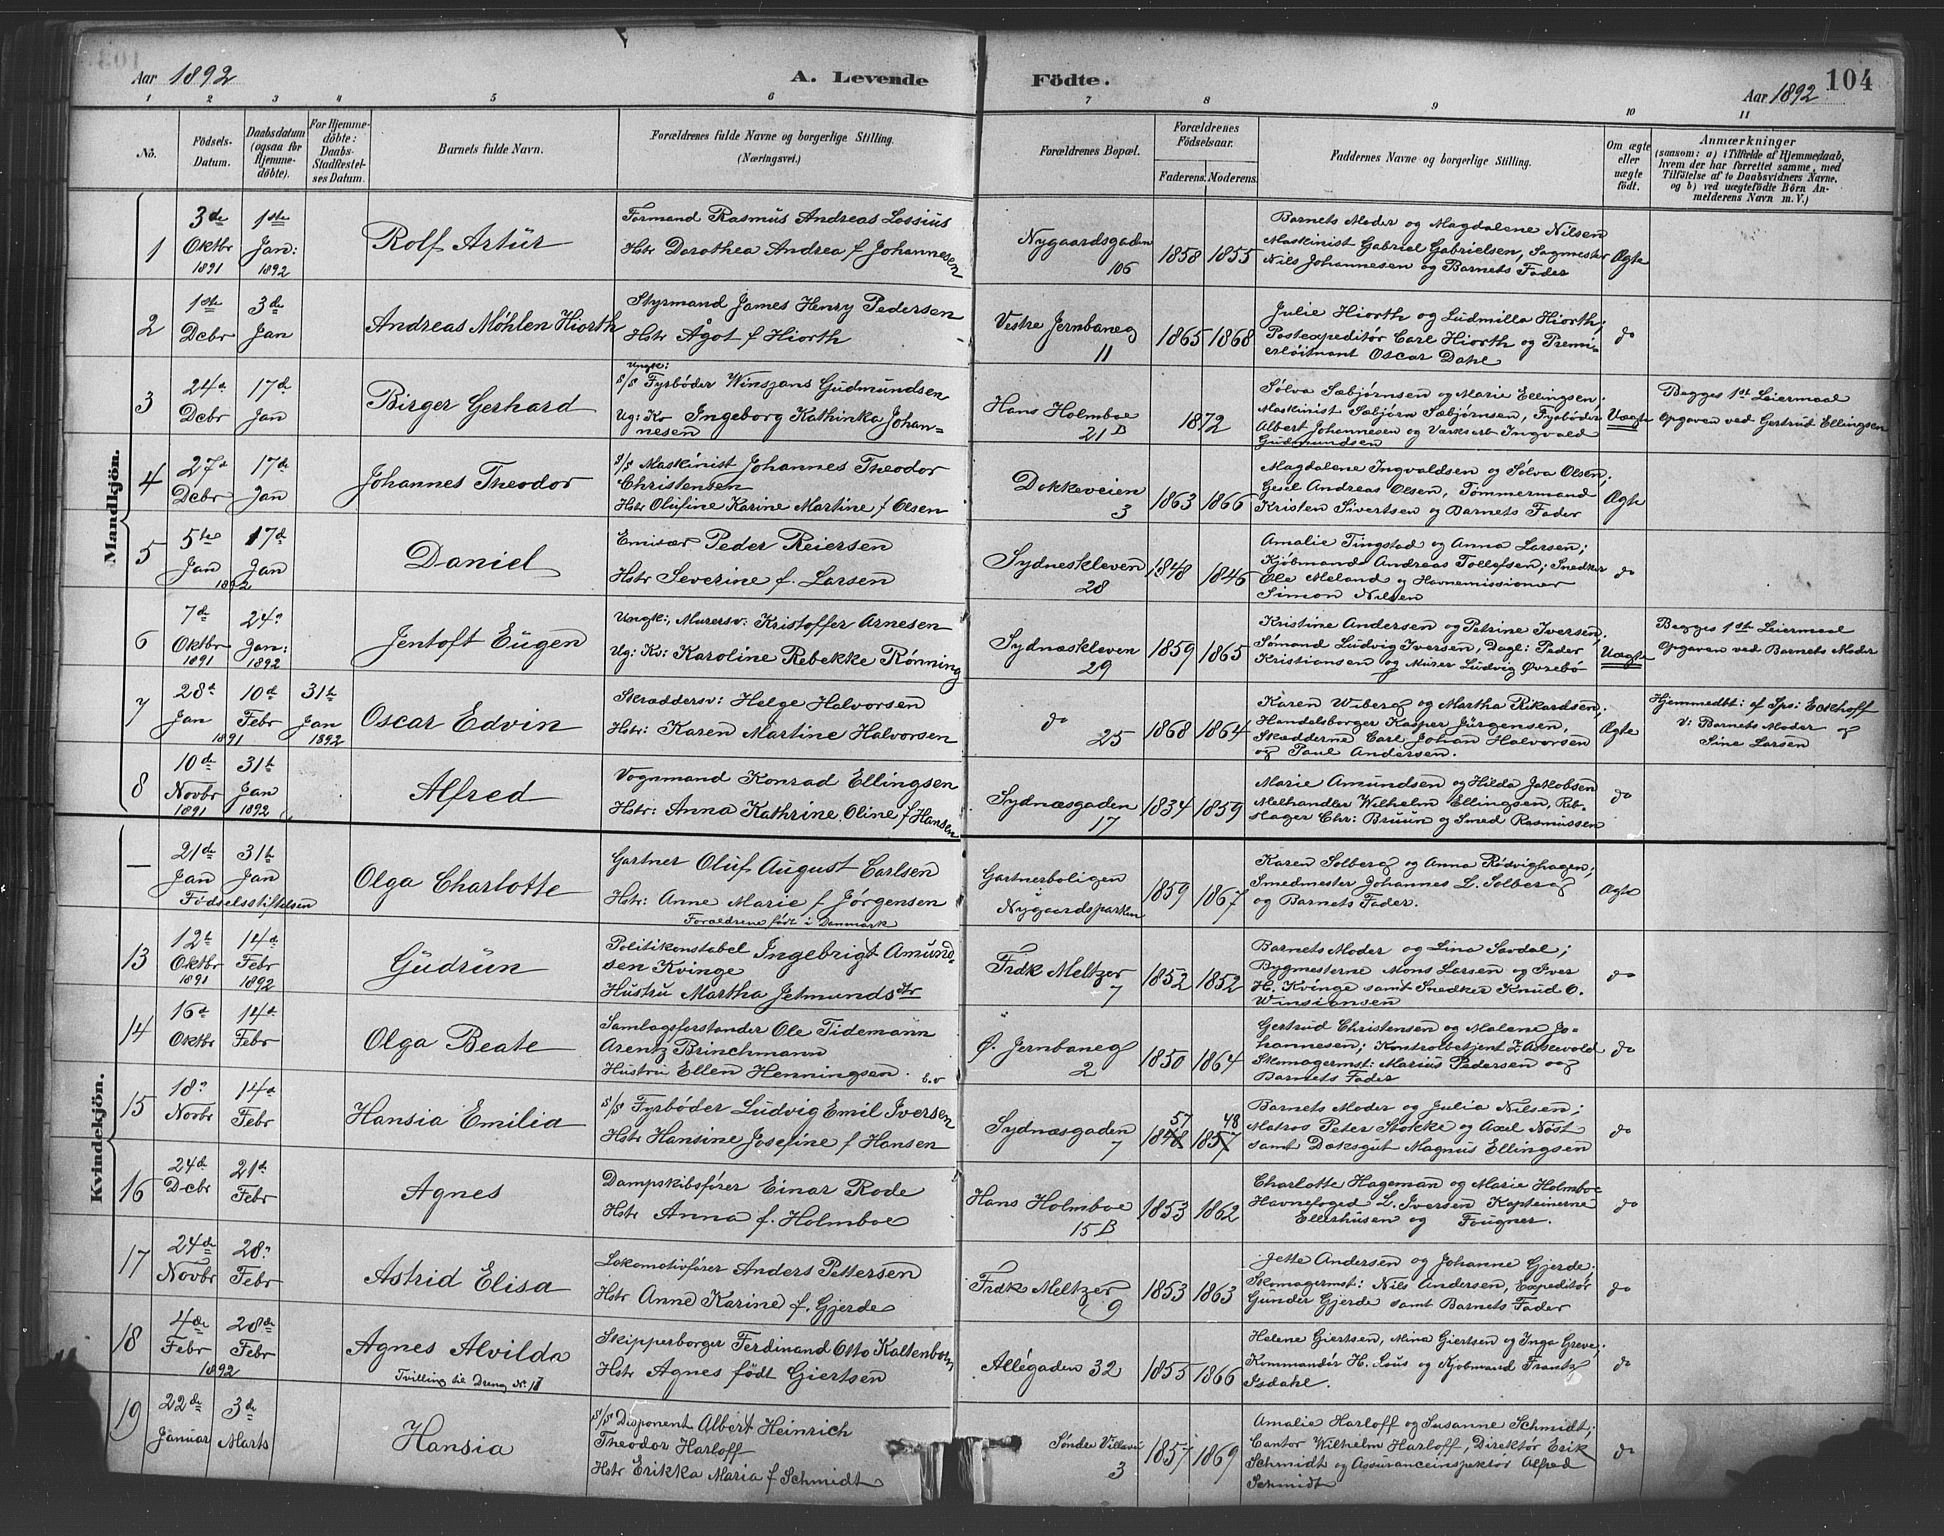 Aar 1892
A. Levende
Födte.
Aar 1892
104
1 2 3 4 5 6 7 8 9 10 11
No.
Födsels-Datum.
Daabsdatum (ogsaa for Hjemmedöbte).
For Hjemmedöbte: Daabs-Stadfestelses Datum.
Barnets fulde Navn.
Forældrenes fulde Navne og borgerlige Stilling. (Næringsvei.)
Forældrenes Bopæl.
Forældrenes Födselsaar.
Faderens. Moderens.
Faddernes Navne og borgerlige Stilling.
Om ægte eller uægte födt.
Anmærkninger
(saasom: a) i Tilfælde af Hjemmedaab, hvem der har forrettet samme, med Tilföielse af to Daabsvidners Navne, og b) ved uægtefödte Börn Anmelderens Navn m. V.)
Mandkjön.
1
3de Oktbr 1891
1ste Jan: 1892
Rolf Artur
Formand Rasmus Andreas Lossius
Hstr Dorothea Andrea f Johannesen
Nygaardsgaden 106
1858 1855
Barnets Moder og Magdalene Nilsen
Maskinist Gabriel Gabrielsen, Sagmester
Nils Johannesen og Barnets Fader
Ægte
2
1ste Dcbr
3de Jan
Andreas Møhlen Hiorth
Styrmand James Henry Pedersen
Hstr Ågot f Hiorth
Vestre Jernbaneg 11
1865 1868
Julie Hiorth og Ludmilla Hiorth;
Postexpeditør Carl Hiorth og Premi-
erløitnant Oscar Dahl
do
3
24d Dcbr
17d Jan
Birger Gerhard
Ungk:
s/s Fyrbøder Winsjans Gudmundsen
Ug: Kv Ingeborg Kathinka Johan-
nesen
Hans Holmboe 21 B
1872
Sølva Sæbjørnsen og Marie Ellingsen;
Maskinist Sæbjørn Sæbjørnsen, Fyrbøder
Albert Johannesen og Værksarb Ingvald
Gudmundsen
Uægte
Begges 1st Leiermaal
Opgaven ved Gertrud Ellingsen
4
27d Dcbr
17d Jan
Johannes Theodor
s/s Maskinist Johannes Theodor
Christensen
Hstr Olufine Karine Martine f Olsen
Dokkeveien 3
1863 1866
Magdalene Ingvaldsen og Sølva Olsen;
Gesel Andreas Olsen, Tømmermand
Kristen Sivertsen og Barnets Fader
Ægte
5
5te Jan 1892
17d Jan
Daniel
Emisær Peder Reiersen
Hstr Severine f. Larsen
Sydneskleven 28
1848 1846
Amalie Tingstad og Anna Larsen;
Kjøbmand Andreas Tollefsen; Snedker
Ole Meland og Havnemissionær
Simon Nilsen
do
6
7de Oktbr 1891
24d Jan: 1892
Jentoft Eugen
Ungk:, Murersv: Kristoffer Arnesen
Ug: Kv: Karoline Rebekke Rønning
Sydnæskleven 29
1859 1865
Kristine Andersen og Petrine Iversen;
Sømand Ludvig Iversen, Dagl: Peder
Kristiansen og Murer Ludvig Øvrebø
Uægte
Begges 1ste Leiermaal
Opgaven ved Barnets Moder
7
28d Jan 1891
10d Febr
31t Jan 1892
Oscar Edvin
Skræddersv: Helge Halvorsen
Hstr: Karen Martine Halvorsen
do 25
1868 1864
Karen Wiberg og Martha Rikardsen;
Handelsborger Kasper Jürgensen,
Skædderne Carl Johan Halvorsen
og Paul Andersen.
Ægte
Hjemmedbt: af Sps: Eckhoff
V: Barnets Moder og
Sine Larsen
8
10d Novbr 1891
31t Jan 1892
Alfred
Vognmand Konrad Ellingsen
Hstr: Anna Kathrine Oline f Hansen
Sydnæsgaden 17
1834 1859
Marie Amundsen og Hilda Jakobsen
Melhandler Wilhelm Ellingsen, Reb-
slager Chr: Bruun og Smed Rasmussen
do
Kvindekjön.
—
21de Jan
31t Jan
Fødselsstiftelsen
Olga Charlotte
Gartner Oluf August Carlsen
Hstr: Anne Marie f Jørgensen
Forældrene født i Danmark
Gartnerboligen Nygaardsparken
1859 1867
Karen Solberg og Anna Rødvighagen;
Smedmester Johannes L. Solberg
og Barnets Fader.
Ægte
13
12t Oktbr 1891
14d Febr 1892
Gudrun
Politikonstabel Ingebrigt Amund-
sen Kvinge
Hustru Martha Jetmundsdtr
Frdk Meltzer 7
1852 1852
Barnets Moder og Lina Sævdal;
Bygmesterne Mons Larsen og Iver
H. Kvinge samt Snedker Knud O.
Winsjansen
do
14
16d Oktbr
14d Febr
Olga Beate
Samlagsforstander Ole Tidemann
Arentz Brinchmann
Hustru Ellen Henningsen
Ø. Jernbaneg 2
1850 1864
Gertrud Christensen og Malene Jo-
hannesen; Kontrolbetjent Z Askevold
Skomagermst: Marius Pedersen og
Barnets Fader
do
15
18d Novbr
14d Febr
Hansia Emilia
s/s Fyrbøder Ludvig Emil Iversen
Hstr Hansine Josefine f Hansen
Sydnæsgaden 7
57 48
1848 1857
Barnets Moder og Julia Nilsen;
Matros Peter Stokke og Axel Nøst
samt Doksgut Magnus Ellingsen
do
16
24de Dcbr
21d Febr
Agnes
Dampskibsfører Einar Rode
Hstr Anna f. Holmboe
Hans Holmboe 15 B
1853 1862
Charlotte Hageman og Marie Holmboe
Havnefoged L. Iversen Kapteinerne
Ellerhusen og Fougner.
do
17
24de Novbr
28d Febr
Astrid Elisa
Lokomotivfører Anders Pettersen
Hstr Anne Karine f. Gjerde
Frdk Meltzer 9
1853 1863
Jette Andersen og Johanne Gjerde.
Skomagermst: Nils Andersen, Expeditør
Gunder Gjerde samt Barnets Fader
do
18
4de Febr 1892
28de Febr
Agnes Alvilda
Tvilling til Dreng Nr.
Skipperborger Ferdinand Otto Kaltenborn
Hstr Agnes født Giertsen
Allégaden 32
1855 1866
Helene Giertsen, Mina Giertsen og Inga Greve;
Kommandør H. Lous og Kjøbmand Frantz
Isdahl.
do
19
22de Januar
3de Marts
Hansia
s/s Disponent Albert Heinrich
Theodor Harloff
Hstr Erikka Maria f Schmidt
Søndre Villavei 3
1857 1869
Amalie Harloff og Susanne Schmidt;
Cantor Wilhelm Harloff, Direktør Erik
Schmidt og Assuranceinspektør Alfred
Schmidt
do